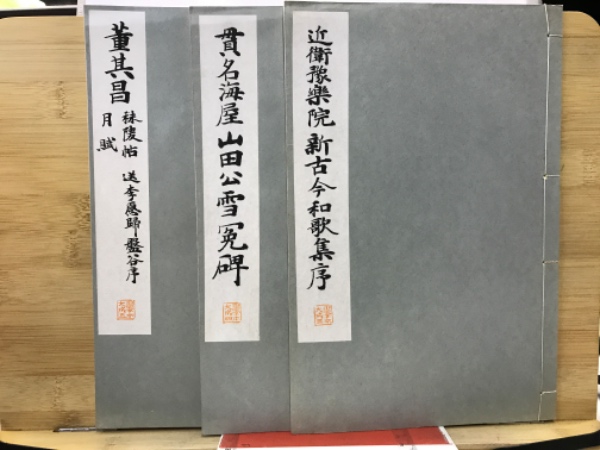 近衛豫樂院 新古今和歌集序
貫名海屋 山田公雪冤碑
董其昌
秣陵帖 送李愿歸盤谷序
月賦